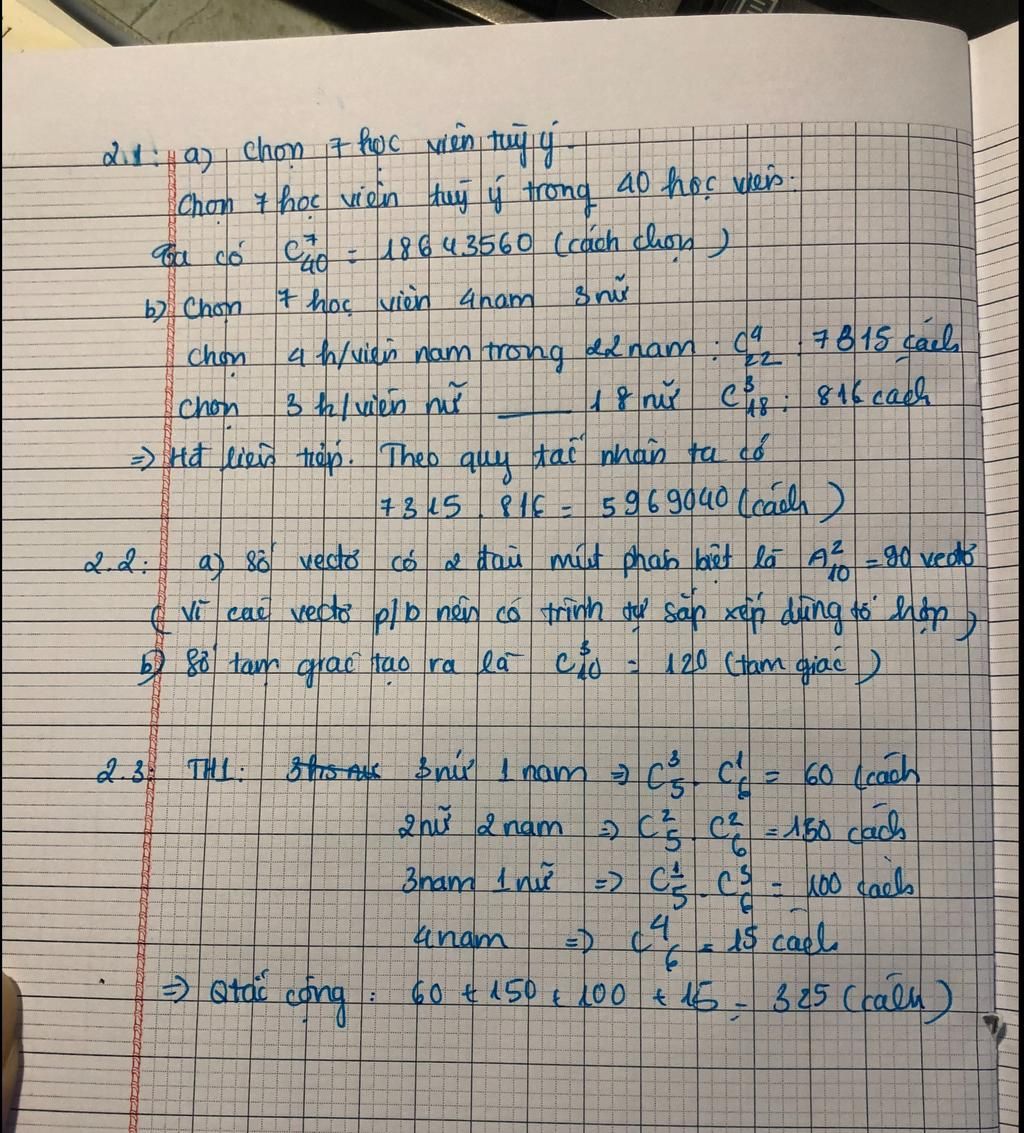 2.1: a) Chọn 7 học viên tuỳ ý.
Chọn 7 học viên tuỳ ý trong 40 học viên.
Ta có C⁷₄₀ = 18643560 (cách chọn)
b) Chọn 7 học viên 4 nam 3 nữ
Chọn 4 h/viên nam trong 22 nam : C⁴₂₂ : 7315 cách
Chọn 3 h/viên nữ ___ 18 nữ C³₁₈ : 816 cách
=> Hđ liên tiếp. Theo quy tắc nhân ta có
7315 . 816 = 5969040 (cách)
2.2: a) Số vectơ có 2 đầu mút phân biệt là A²₁₀ = 90 vectơ
( Vì các vectơ p/b nên có trình tự sắp xếp dùng tổ hợp )
b) Số tam giác tạo ra là C³₁₀ = 120 (tam giác)
2.3: TH1: 3 nữ 1 nam => C³₅ . C¹₆ = 60 (cách
2 nữ 2 nam => C²₅ . C²₆ = 150 cách
3 nam 1 nữ => C¹₅ . C³₆ = 100 cách
4 nam => C⁴₆ = 15 cách
=> Qtắc cộng : 60 + 150 + 100 + 15 = 325 (cách)